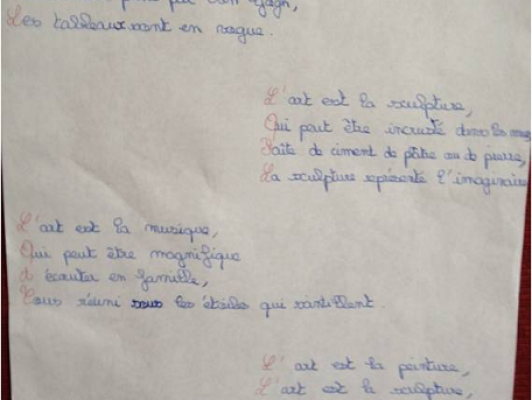 par Van Gogh,
Les tableaux sont en vague.
L'art est la sculpture,
Qui peut être incrusté dans les
Faite de ciment de plâtre ou de pierre,
La sculpture représente l'imaginaire
L'art est la musique,
Qui peut être magnifique
A écouter en famille,
Tous réuni sous les étoiles qui scintillent.
L'art est la peinture,
L'art est la sculpture,